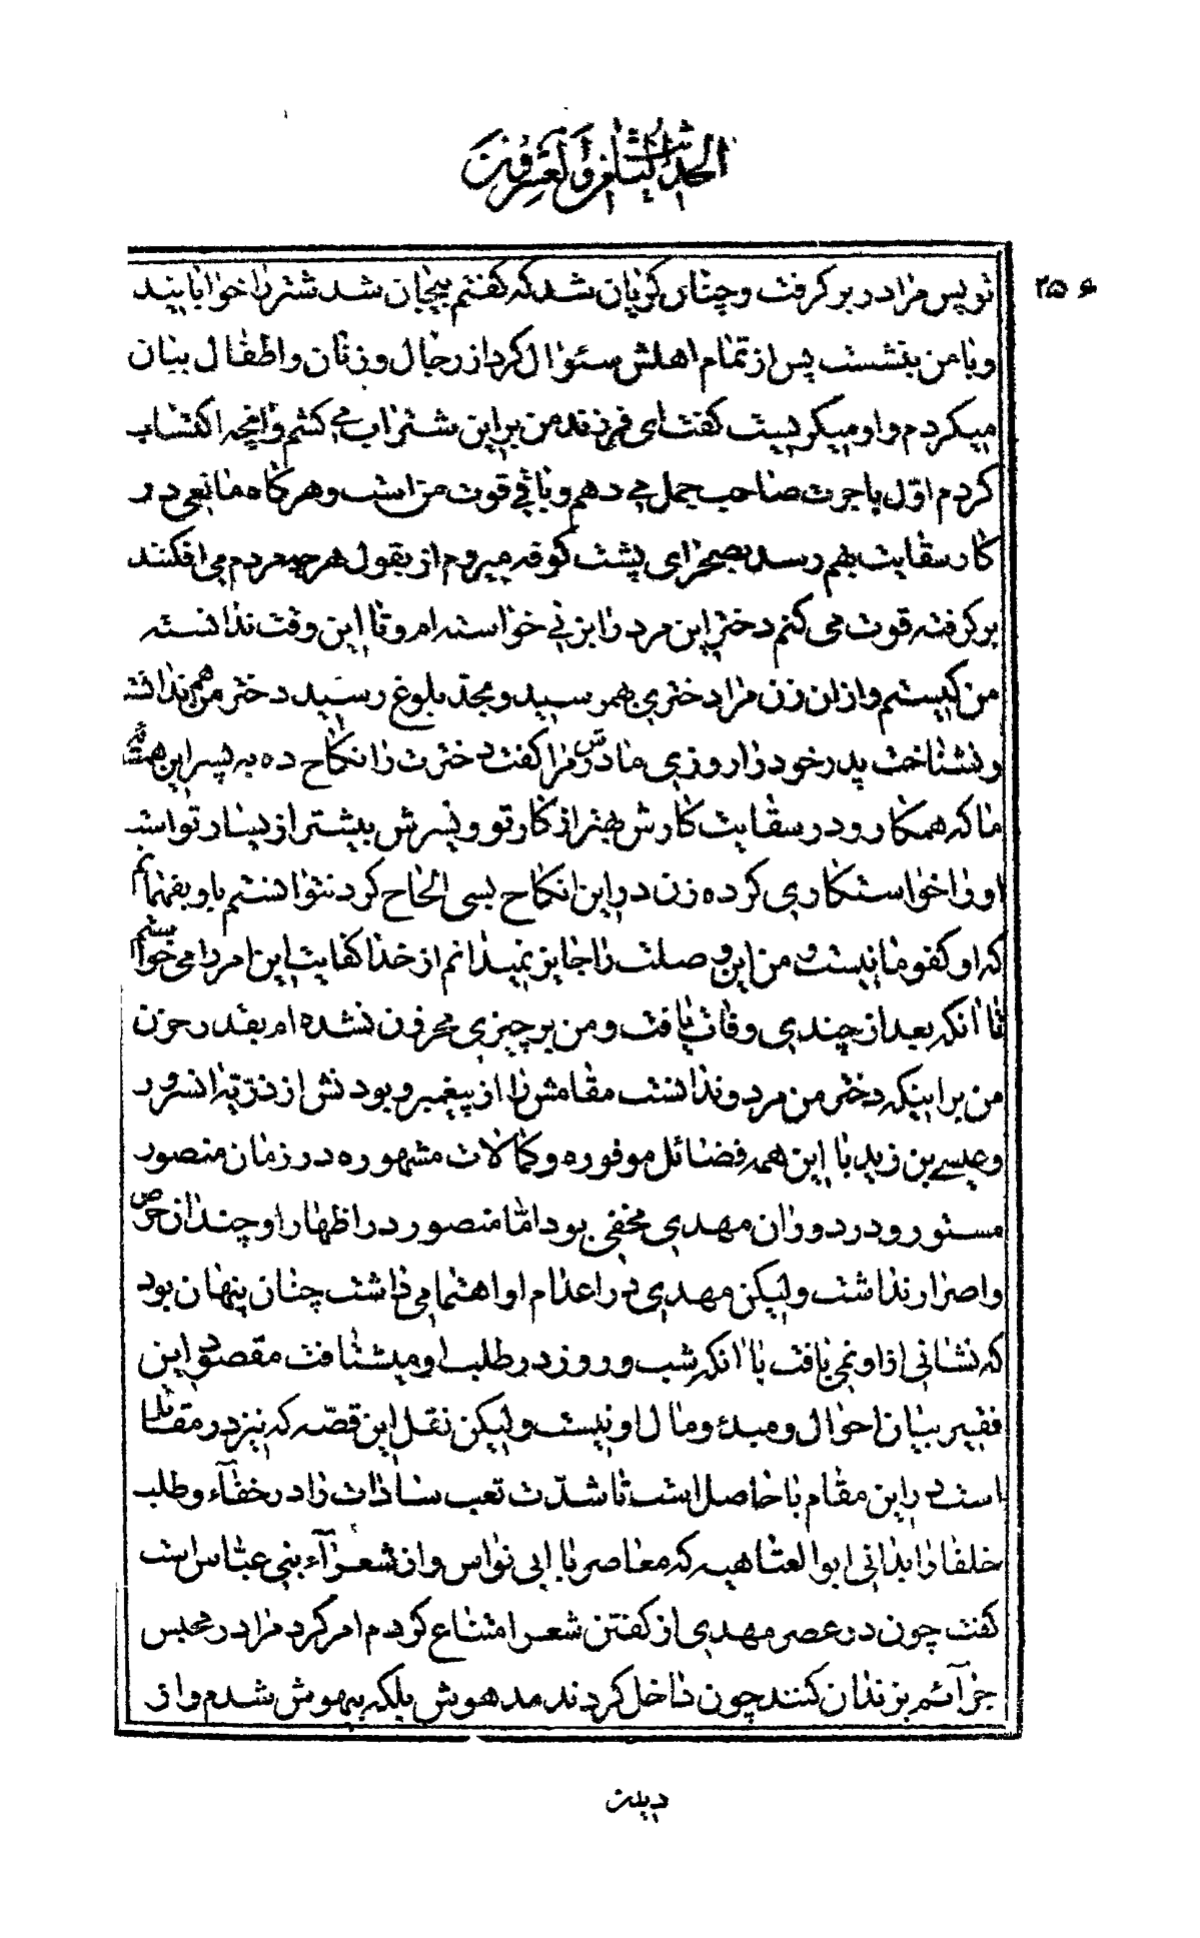 الحدیث الثامن والعشرون
۲۵۶
تو پس مرا در بر گرفت و چنان گریان شد که گفتم بیجان شد شتر را خوابانید
و با من بنشست پس از تمام اهلش سئوال کرد از رجال و زنان و اطفال بیان
میکردم و او میگریست گفت ای فرزند من بر این شتر اب می کشم و انچه اکتساب
کردم اوّل باجرت صاحب جمل می دهم و باقی قوت من است و هرگاه مانعی در
کار سقایت بهم رسد بصحرای پشت کوفه میروم از بقول هرچه مردم می افکنند
بر گرفته قوت می کنم دختر این مرد را بزنی خواسته ام و تا این وقت ندانسته
من کیستم و از ان زن مرا دختری بهم رسید و بحد بلوغ رسید دختر من هم ندانست
و نشناخت پدر خود را روزی مادرش مرا گفت دخترت را نکاح ده به پسر این همسایه
ما که همکار و در سقایت کارش بهتر از کار تو و پسرش بیشتر از یسار تو است
او را خواستکاری کرده زن در این انکاح بسی الحاح کرد نتوانستم باو بفهمانم
که او کفو ما نیست و من این وصلت را جایز نمیدانم از خدا کفایت این امر را می خواستم
تا انکه بعد از چندی وفات یافت و من بر چیزی محزون نشده ام بقدر حزن
من بر اینکه دختر من مرد و ندانست مقامش را از پیغمبر و بودنش از ذرّیّه انسرور
و عیسی بن زید با این همه فضائل موفوره و کمالات مشهوره در زمان منصور
مستور و در دوران مهدی مخفی بود امّا منصور در اظهار او چندان حرص
و اصرار نداشت ولیکن مهدی در اعدام او اهتمامی داشت چنان پنهان بود
که نشانی از او نمی یافت با انکه شب و روز در طلب او میشتافت مقصود این
فقیر بیان احوال و مبدء و مال او نیست ولیکن نقل این قصّه که نیز در مقاتل
است در این مقام با حاصل است تا شدّت تعب سادات را در خفآء و طلب
خلفا را بدانی ابوالعتاهیه که معاصر با ابی نواس و از شعرآء بنی عباس است
گفت چون در عصر مهدی از گفتن شعر امتناع کردم امر کرد مرا در محبس
جرآئم بزندان کنند چون داخل کردند مدهوش بلکه بیهوش شدم و از
دیدن